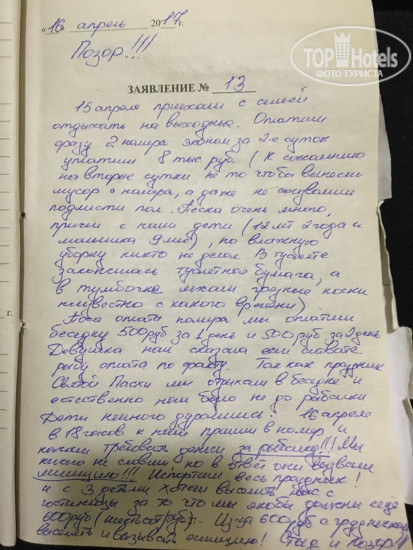 "16" апрель 2017г.
TOPHotels
ФОТО ТУРИСТА
Позор!!!
ЗАЯВЛЕНИЕ № 13
15 апреля приехали с семьей
отдыхать на выходные. Оплатили
сразу 2 номера эконом за 2-е суток
уплатили 8 тыс руб. (К сожалению
на вторые сутки не то чтобы вынесли
мусор с номера, а даже не
подмести пол. Песка очень много,
причем с нами дети (12 лет 2 года и
малышка 9 мес), но влажную
уборку никто не делал. В туалете
закончилась туалетная бумага, а
в тумбочке лежали грязные носки
неизвестно с какого времени).
После оплаты номера мы оплатили
беседку 500 руб за 1 день и 500 руб за 2 день
Девушка нам сказала если словите
рыбу оплата по факту. Так как праздник
Святой Пасхи мы отдыхали в беседке и
естественно нам было не до рыбалки
Дети немного дуромшись! 16 апреля
в 18 часов к нам пришли в номер и
начали требовать деньги за рыбалку!!! Мы
ничего не словили, но в ответ они вызвали
милицию!!! Испортили весь праздник!
и с 3 детьми хотели выселить нас с
гостиницы за то что мы якобы должны ещё
600 руб (шестьсот руб). Из-за 600 руб с
выселить и вызывать милицию! Позор!!!